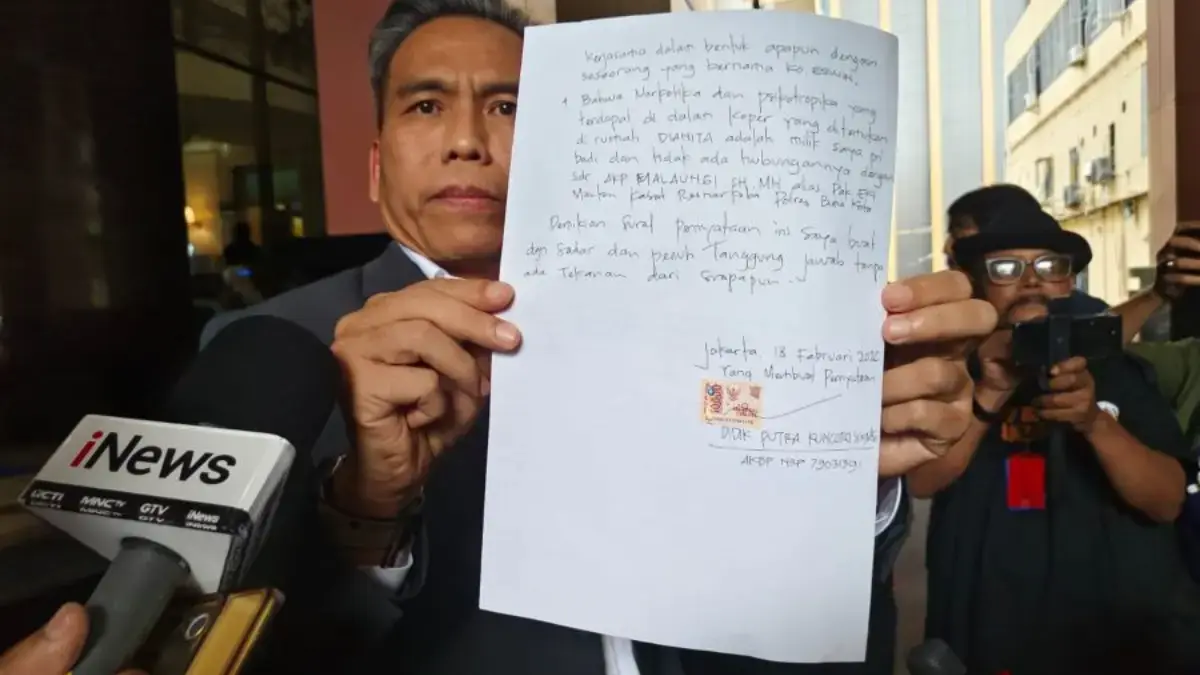 Kerjasama dalam bentuk apapun dengan
seseorang yang bernama Ko ERWIN.
Bahwa Narkotika dan psikotropika yang
terdapat di dalam koper yang ditemukan
di rumah DIANITA adalah milik saya pri
badi dan tidak ada hubungannya dengan
sdr AKP MALAUNGI SH. MH alias Pak EGI
Mantan Kasat Resnarkoba Polres Bima Kota
Demikian Surat Pernyataan ini saya buat
dgn Sadar dan penuh Tanggung jawab tanpa
ada Tekanan dari Siapapun.
Jakarta 18 Februari
Yang Membuat Pernyataan
10000
DIDIK PUTRA
AKBP NRP
iNews
RCTI MNCTV GTV iNews